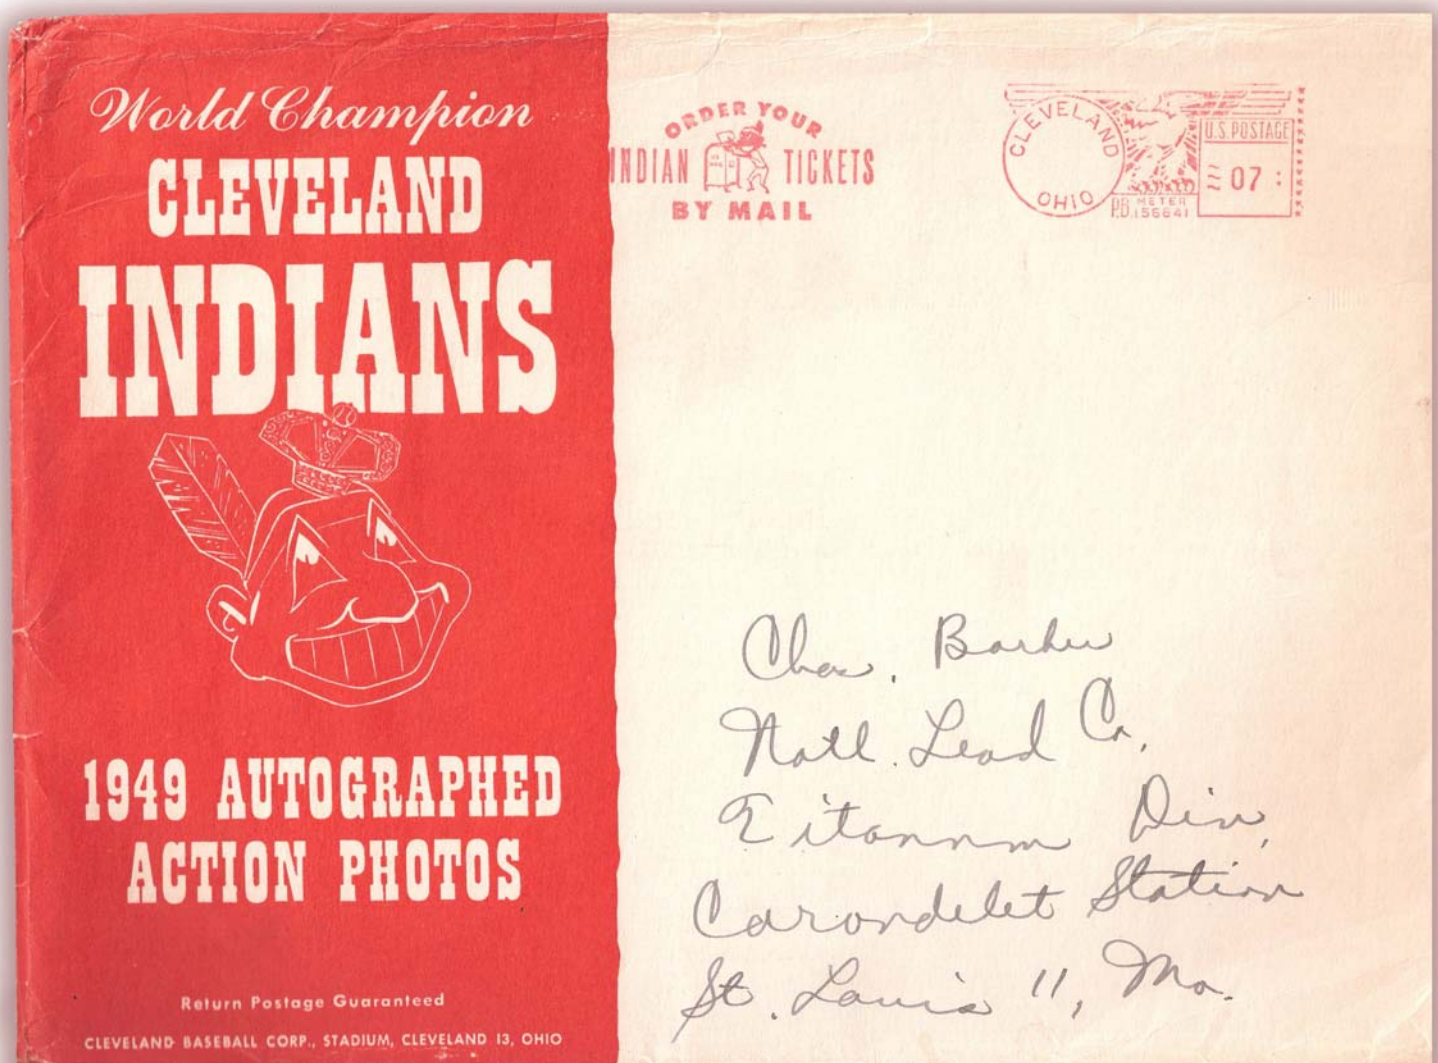 World Champion
CLEVELAND
INDIANS
1949 AUTOGRAPHED
ACTION PHOTOS
Return Postage Guaranteed
CLEVELAND BASEBALL CORP., STADIUM, CLEVELAND 13, OHIO
ORDER YOUR
INDIAN TICKETS
BY MAIL
CLEVELAND
OHIO
U.S. POSTAGE
07
P.B. METER
156641
Chas. Barker
Natl. Lead Co.
Titanum Div.
Carondelet Station
St. Louis 11, Mo.